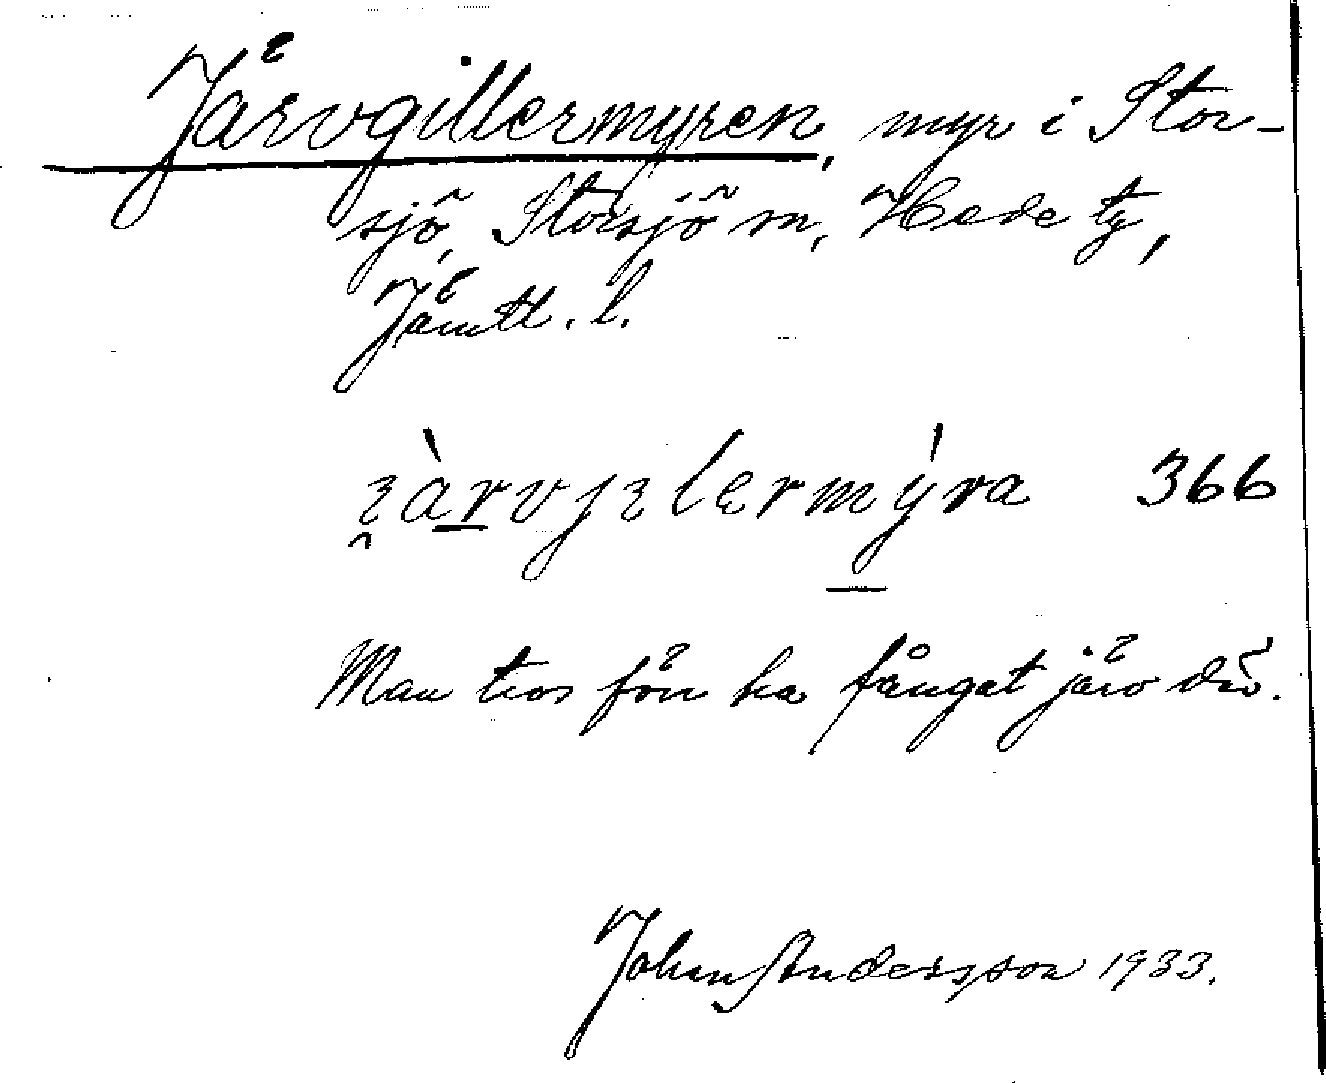 Järvgillermyren, myr i Stor-
sjö, Storsjö sn, Hede tg,
Jämtl. l.
366
Man tros förr ha fångat järv där.
Johan Andersson 1933.